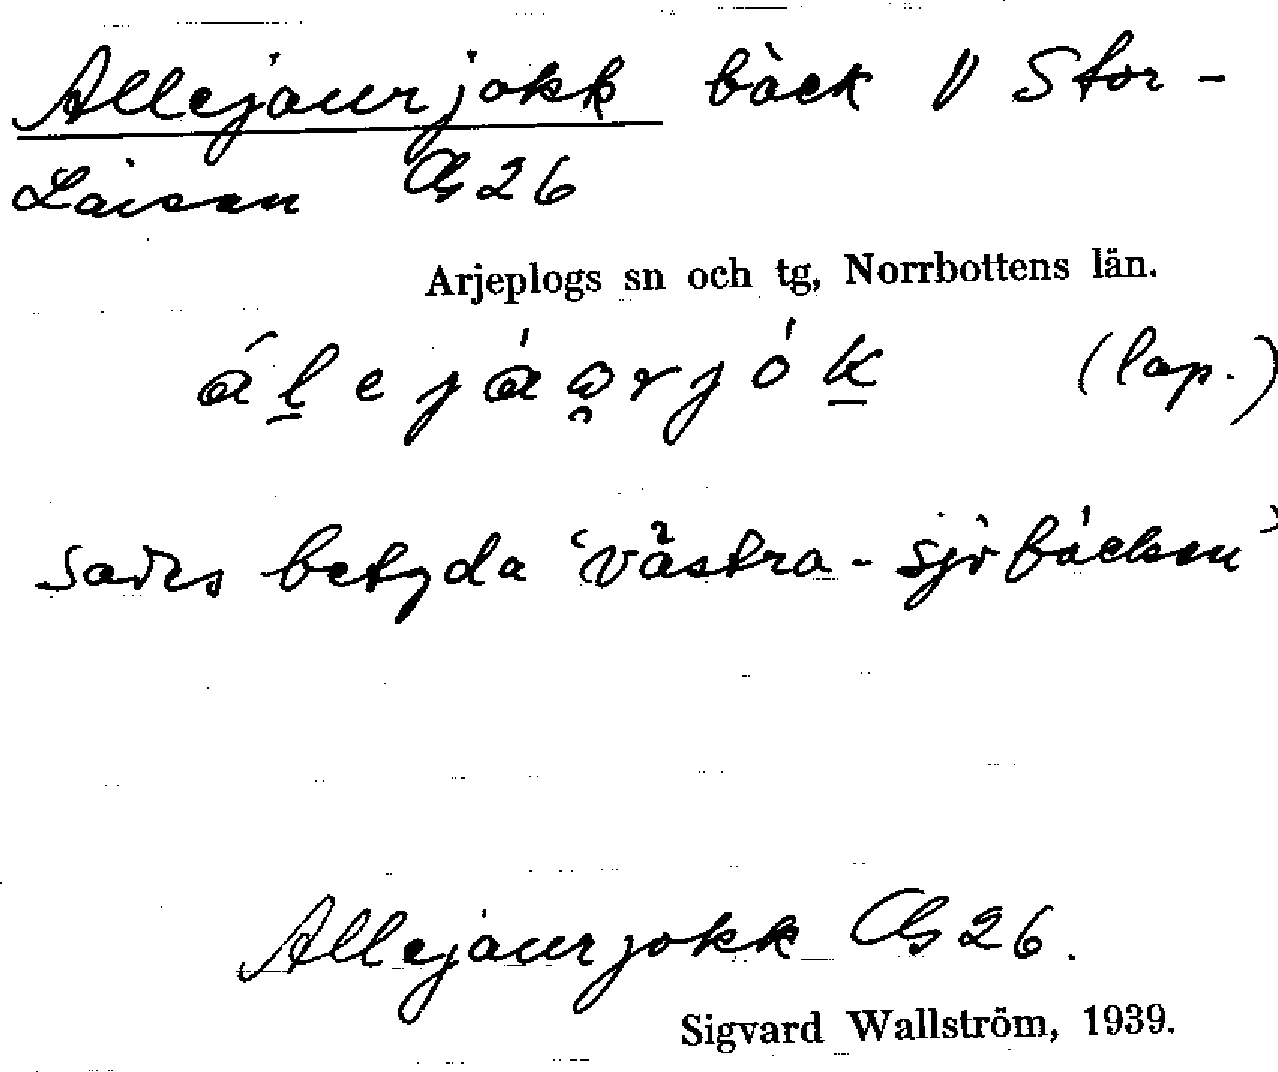 Allejaurjokk bäck V Stor-
Laisan Gb 26
Arjeplogs sn och tg, Norrbottens län.
áḻejáo̯rjóḵ (lap.)
sades betyda 'västra-sjöbäcken'
Allejaurjokk Gb 26.
Sigvard Wallström, 1939.